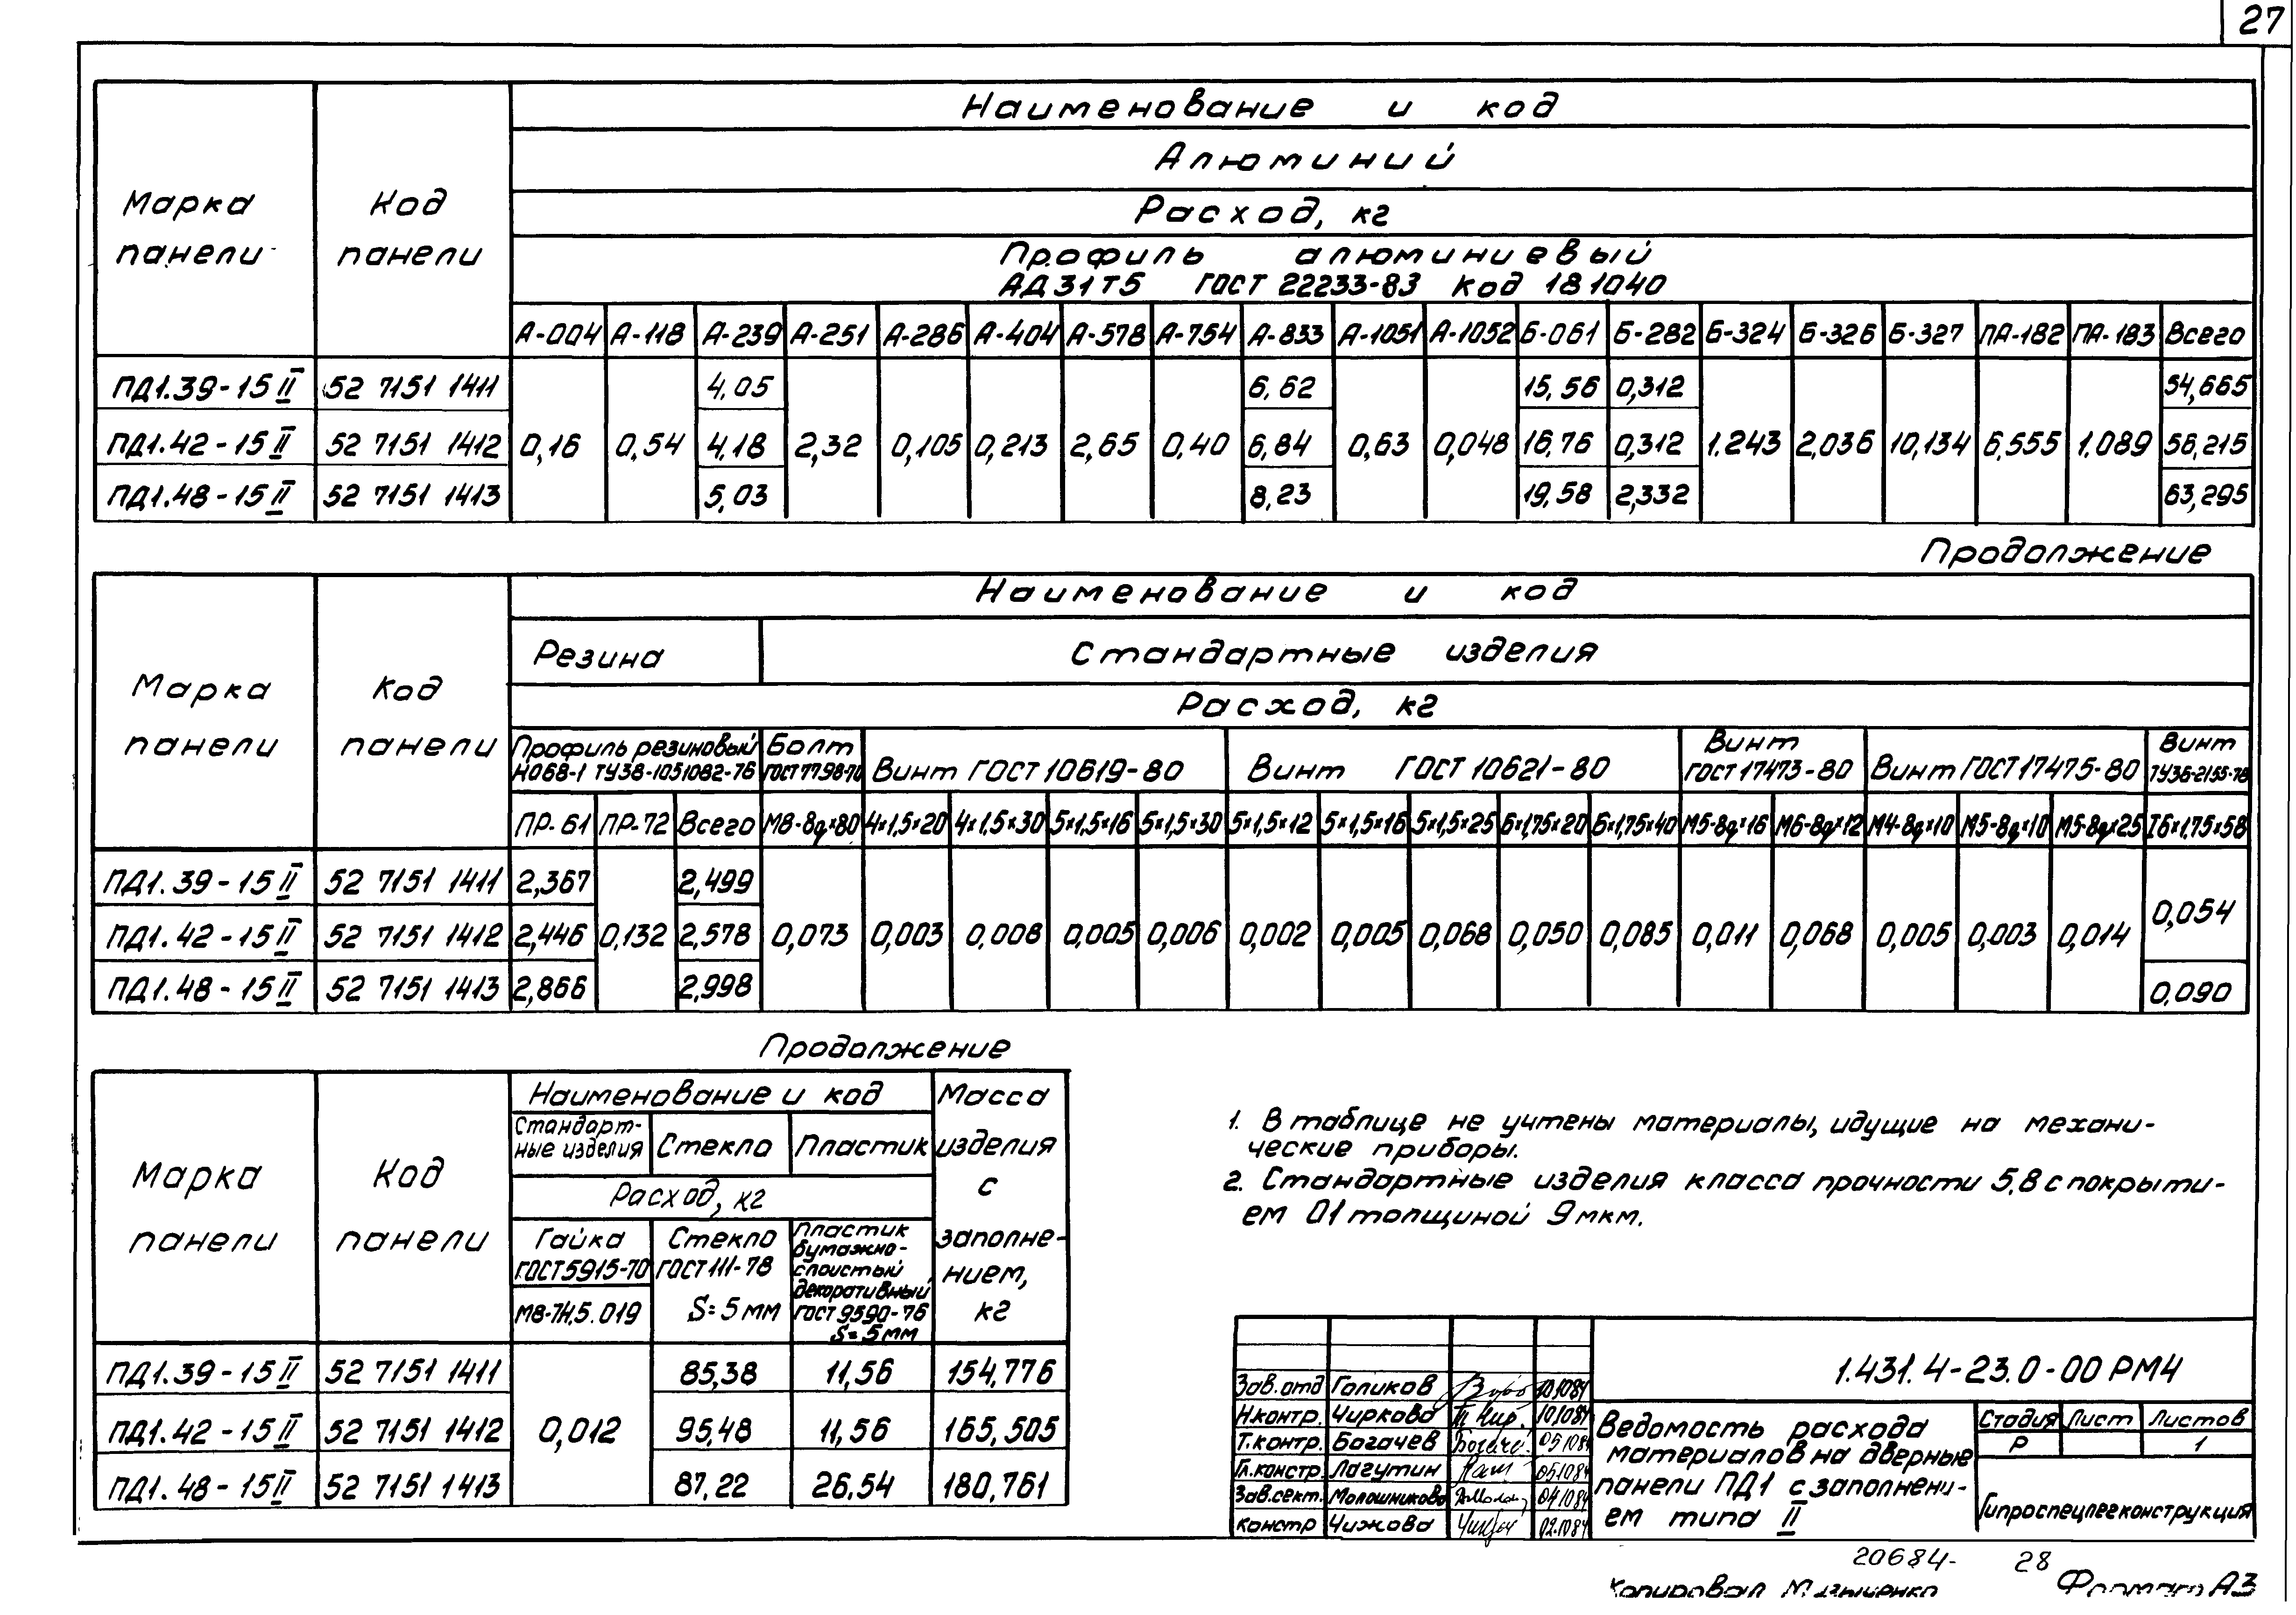 27
Наименование и код
Алюминий
Расход, кг
Марка панели
Код панели
Профиль алюминиевый
АД31Т5 ГОСТ 22233-83 Код 181040
А-004 А-118 А-239 А-251 А-286 А-404 А-578 А-754 А-833 А-1051 А-1052 Б-061 Б-282 Б-324 Б-326 Б-327 ПА-182 ПА-183 Всего
ПД1.39-15II 52 7151 1411 4,05 6,62 15,56 0,312 54,665
ПД1.42-15II 52 7151 1412 0,16 0,54 4,18 2,32 0,105 0,213 2,65 0,40 6,84 0,63 0,048 16,76 0,312 1.243 2,036 10,134 6,555 1.089 56,215
ПД1.48-15II 52 7151 1413 5,03 8,23 19,58 2,332 63,295
Продолжение
Наименование и код
Резина Стандартные изделия
Марка панели
Код панели
Расход, кг
Профиль резиновый НО68-1 ТУ38-1051082-76
Болт ГОСТ 7798-70
Винт ГОСТ 10619-80
Винт ГОСТ 10621-80
Винт ГОСТ 17473-80
Винт ГОСТ 17475-80
Винт ТУ36-2155-78
ПР-61 ПР-72 Всего М8-8g×80 4×1,5×20 4×1,5×30 5×1,5×16 5×1,5×30 5×1,5×12 5×1,5×16 5×1,5×25 6×1,75×20 6×1,75×40 М5-8g×16 М6-8g×12 М4-8g×10 М5-8g×10 М5-8g×25 I6×1,75×58
ПД1.39-15II 52 7151 1411 2,367 2,499
0,054
ПД1.42-15II 52 7151 1412 2,446 0,132 2,578 0,073 0,003 0,008 0,005 0,006 0,002 0,005 0,068 0,050 0,085 0,011 0,068 0,005 0,003 0,014
ПД1.48-15II 52 7151 1413 2,866 2,998 0,090
Продолжение
Марка панели
Код панели
Наименование и код
Стандарт-
ные изделия
Стекло
Пластик
Расход, кг
Гайка
ГОСТ 5915-70
М8-7Н.5.019
Стекло
ГОСТ 111-78
S=5мм
Пластик
бумажно-
слоистый
декоративный
ГОСТ 9590-76
S=5мм
Масса
изделия
с
заполне-
нием,
кг
ПД1.39-15II 52 7151 1411 85,38 11,56 154,776
ПД1.42-15II 52 7151 1412 0,012 95,48 11,56 165,505
ПД1.48-15II 52 7151 1413 87,22 26,54 180,761
1. В таблице не учтены материалы, идущие на механи-
ческие приборы.
2. Стандартные изделия класса прочности 5,8 с покрыти-
ем 01 толщиной 9 мкм.
Зав.отд Голиков 10.1084
Н.контр. Чиркова 10.1084
Т.контр. Богачев 05.1084
Гл.констр. Лагутин 05.1084
Зав.сект. Молошникова 04.1084
Констр Чижова 02.1084
1.431.4-23.0-00 РМ4
Ведомость расхода
материалов на дверные
панели ПД1 с заполнени-
ем типа II
Стадия Лист Листов
Р 1
Гипроспецлегконструкция
20684- 28
Копировал Формат А3